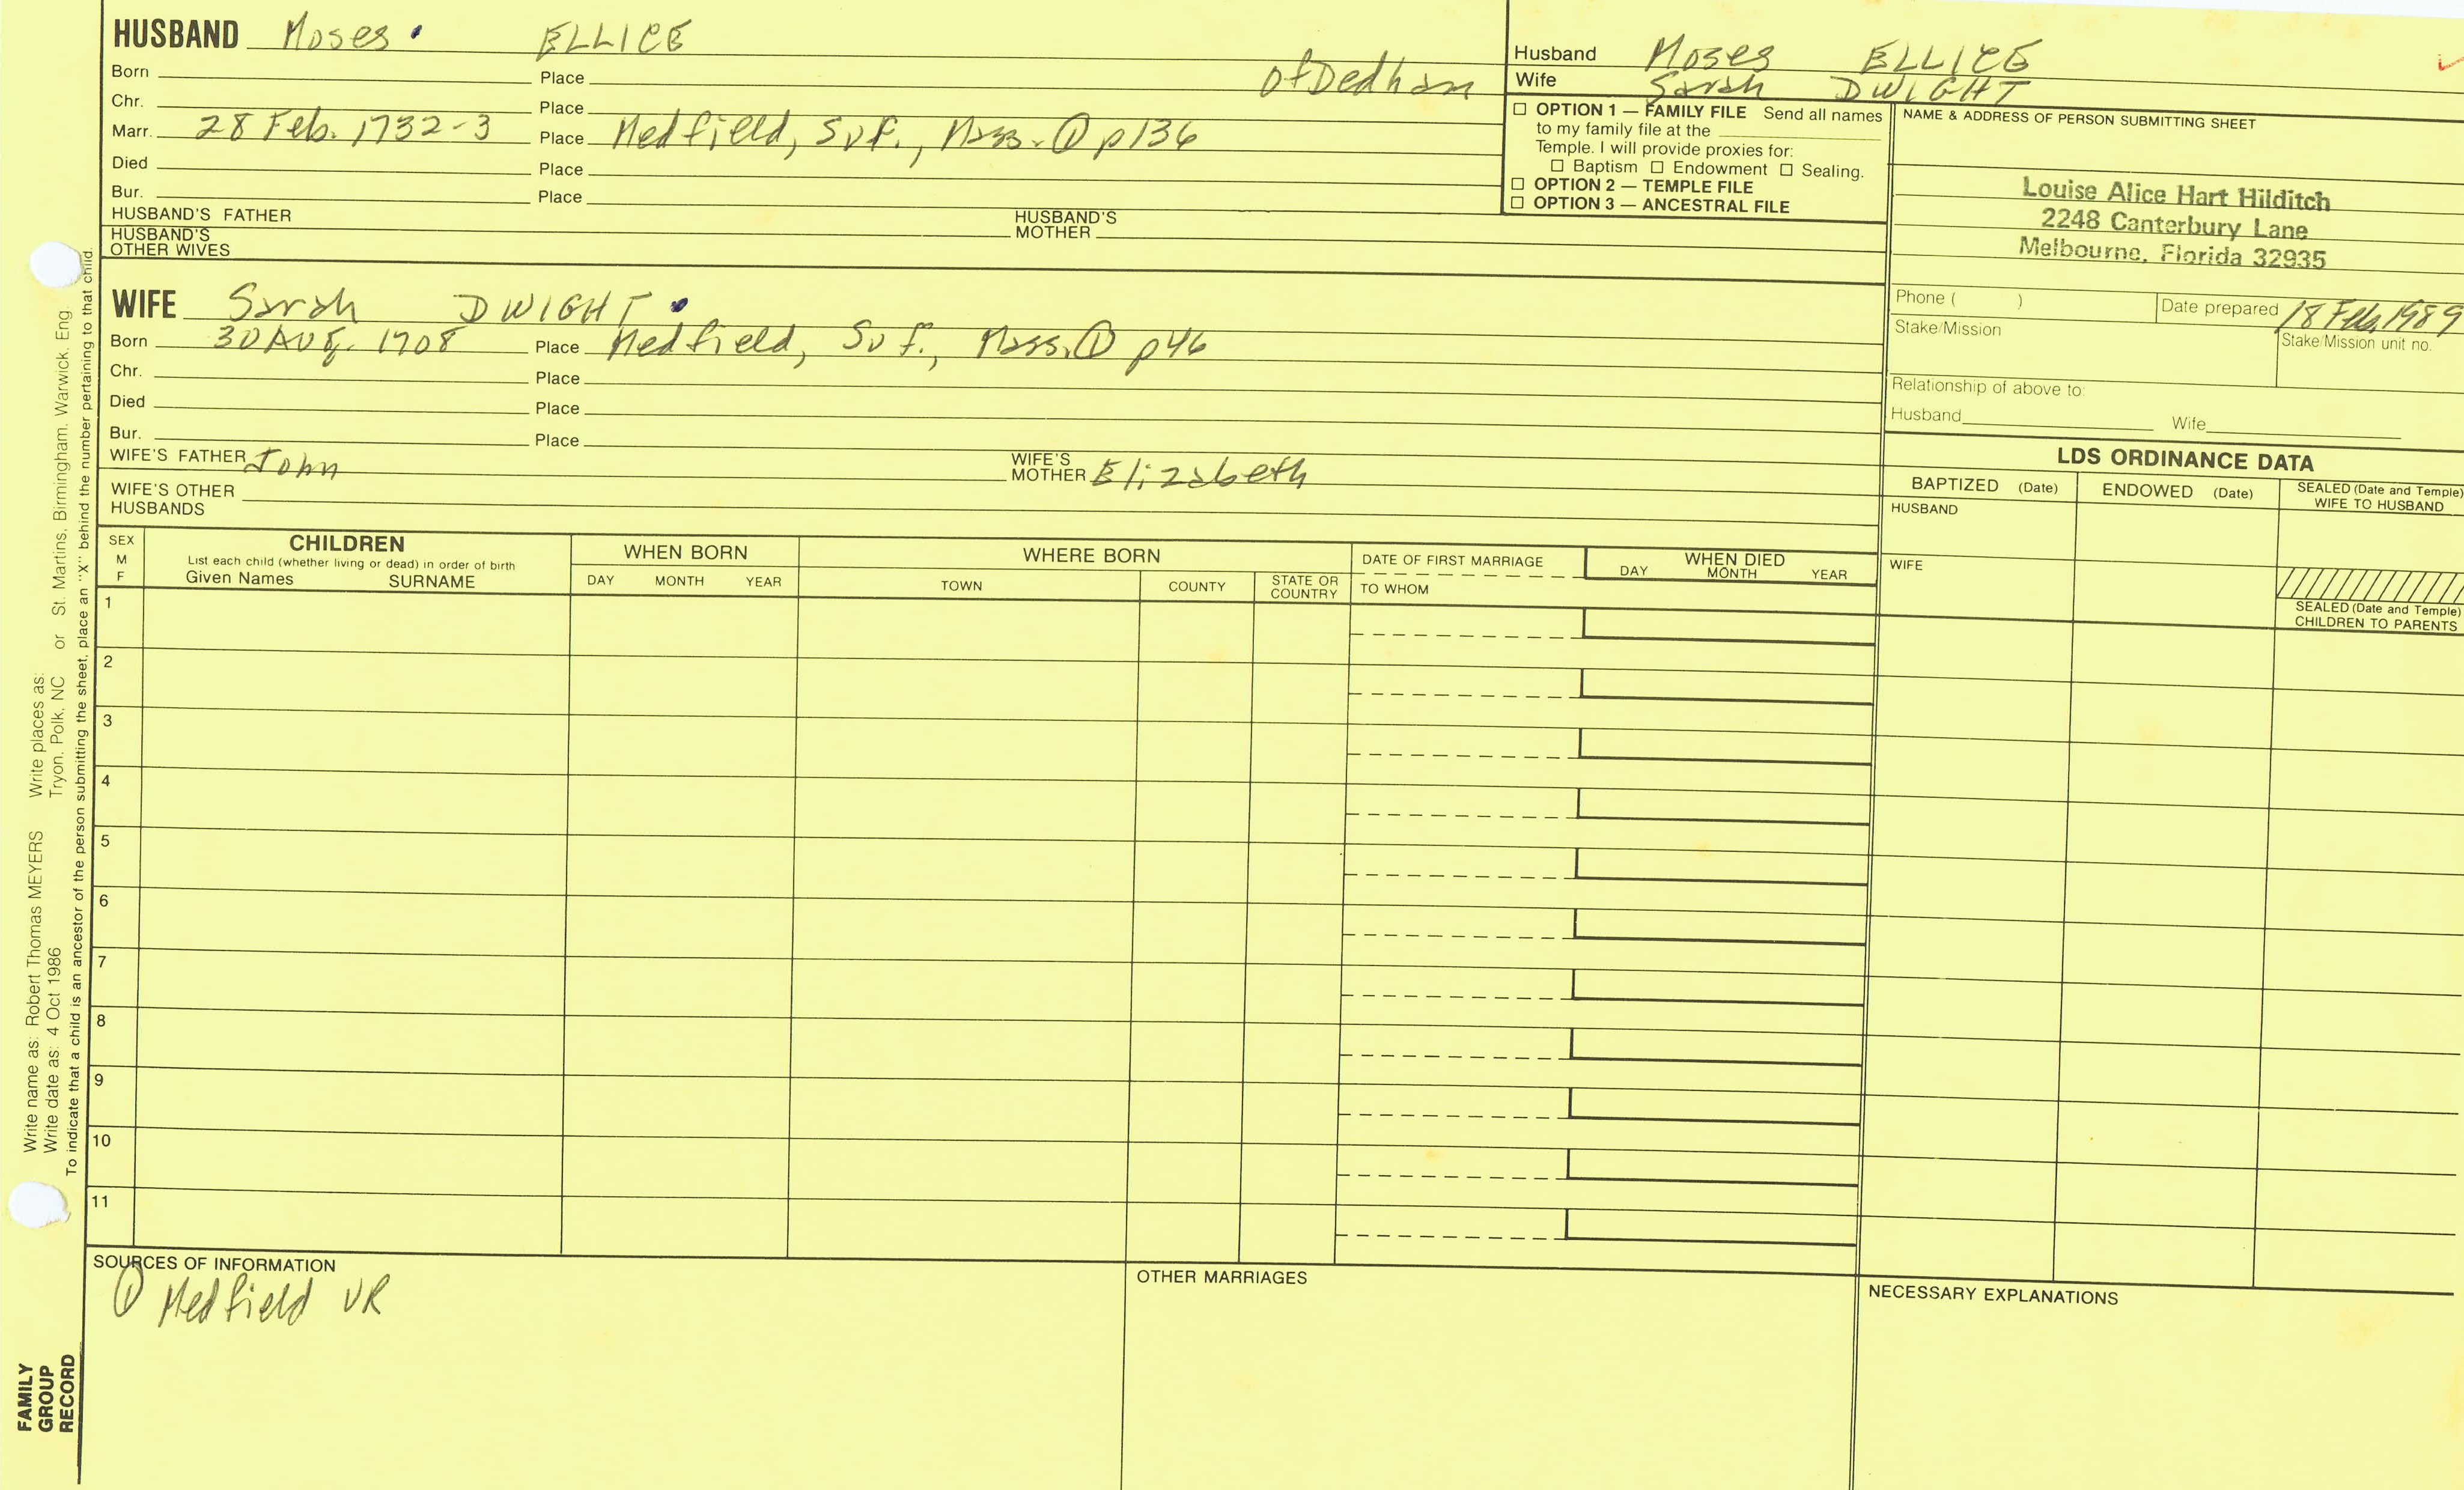 HUSBAND Moses ELLICE
of Dedham
Born Place
Chr. Place
Marr. 28 Feb. 1732-3 Place Medfield, Suf., Mass. ① p136
Died Place
Bur. Place
HUSBAND'S FATHER HUSBAND'S MOTHER
HUSBAND'S OTHER WIVES
WIFE Sarah DWIGHT
Born 30 Aug. 1708 Place Medfield, Suf., Mass. ① p46
Chr. Place
Died Place
Bur. Place
WIFE'S FATHER John WIFE'S MOTHER Elizabeth
WIFE'S OTHER HUSBANDS
Husband Moses ELLICE
Wife Sarah DWIGHT
☐ OPTION 1 — FAMILY FILE Send all names
to my family file at the
Temple. I will provide proxies for:
☐ Baptism ☐ Endowment ☐ Sealing.
☐ OPTION 2 — TEMPLE FILE
☐ OPTION 3 — ANCESTRAL FILE
NAME & ADDRESS OF PERSON SUBMITTING SHEET
Louise Alice Hart Hilditch
2248 Canterbury Lane
Melbourne, Florida 32935
Phone ( ) Date prepared 18 Feb, 1989
Stake/Mission Stake/Mission unit no.
Relationship of above to:
Husband Wife
LDS ORDINANCE DATA
BAPTIZED (Date) ENDOWED (Date) SEALED (Date and Temple)
WIFE TO HUSBAND
HUSBAND
WIFE
SEALED (Date and Temple)
CHILDREN TO PARENTS
SEX
M
F
CHILDREN
List each child (whether living or dead) in order of birth
Given Names SURNAME
WHEN BORN
DAY MONTH YEAR
WHERE BORN
TOWN COUNTY STATE OR COUNTRY
DATE OF FIRST MARRIAGE
TO WHOM
WHEN DIED
DAY MONTH YEAR
1
2
3
4
5
6
7
8
9
10
11
SOURCES OF INFORMATION
① Medfield VR
OTHER MARRIAGES
NECESSARY EXPLANATIONS
Write name as: Robert Thomas MEYERS Write places as:
Write date as: 4 Oct 1986 Tryon, Polk, NC or St. Martins, Birmingham, Warwick, Eng.
To indicate that a child is an ancestor of the person submitting the sheet, place an "X" behind the number pertaining to that child.
FAMILY
GROUP
RECORD